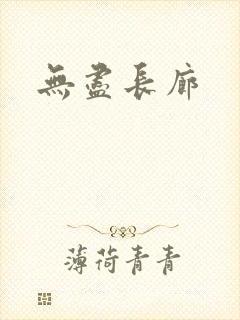 無盡長廊
薄荷青青